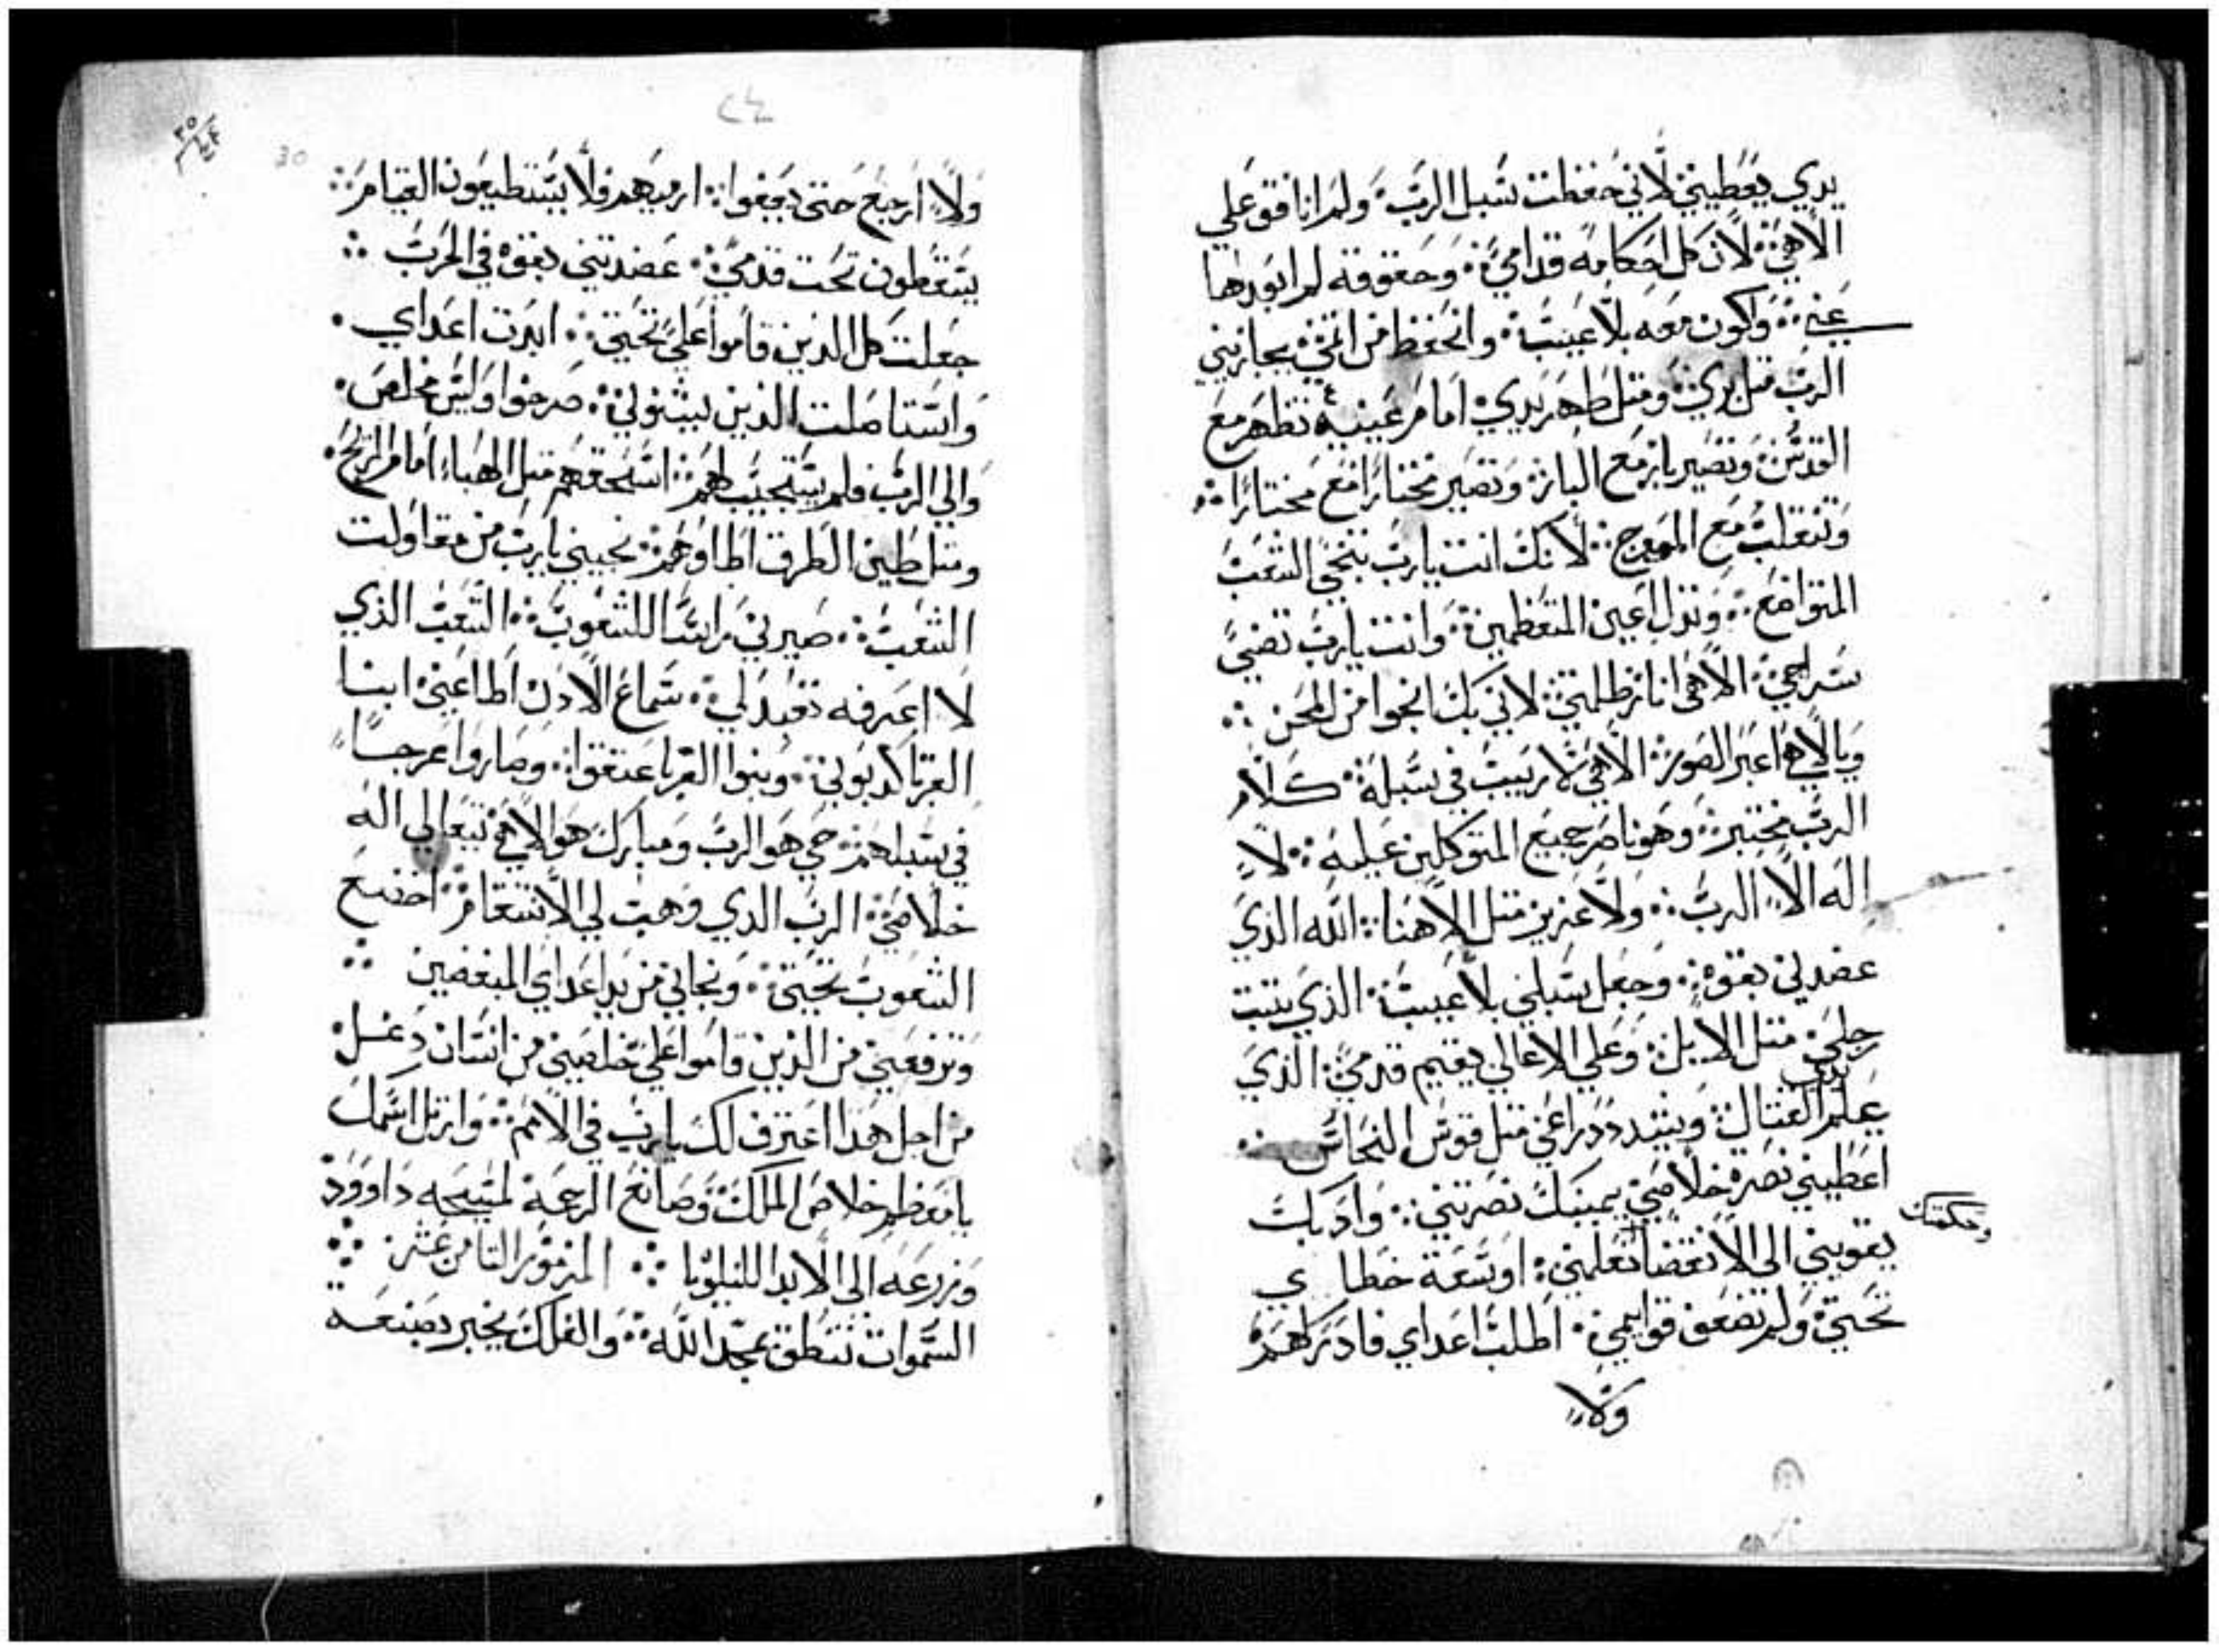 يدي يعطيني لاني حفظت سبل الرب ولم انافق علي
الاهي لان كل احكامه قدامي وحقوقه لم ابعدها
عني واكون معه بلا عيب واتحفظ من اتمي يجازيني
الرب متل بري ومتل طهر يدي امام عينيه تطهر مع
القديس وتصير بار مع البار وتصير مختارا مع مختارا
وتنقلب مع المعوج لانك انت يارب تنجي الشعب
المتواضع وتذل اعين المتعظمين وانت يارب تضي
سراجي الاهي انار ظلمتي لاني بك انجوا من المحن
وبالاهي اعبر الصور الاهي لا ريب في سبله كلام
الرب مختبر وهو ناصر جميع المتوكلين عليه لا
اله الا الرب ولا عزيز متل الاهنا الله الذي
عضدني بقوه وجعل سبلي بلا عيب الذي يتبت
رجلي متل الايل وعلي الاعالي يقيم قدمي الذي
يعلم يدي القتال ويشدد دراعي متل قوس النحاس
اعطيني نصرة خلاصي يمينك نصرتني وادبك
وحكمتك
يقويني الى الانقضا تعلمني اوسعة خطاي
تحتي ولم تضعف قوايمي اطلب اعداي فادركهم
ولا
٢٤
30
ولا ارجع حتى يقعوا ارميهم فلا يستطيعون القيام
يسقطون تحت قدمي عضدتني بقوه في الحرب
جعلت كل الذين قاموا علي تحتي ابدت اعداي
واستاصلت الذين يشنوني صرخوا وليس مخلص
والي الرب فلم يستجيب لهم اسحقهم متل الهباء امام الريح
ومتل طين الطرق اطاوهم نجيني يارب من مقاولت
الشعب صيرني راسا للشعوب الشعب الذي
لا اعرفه تعبد لي سماع الادن اطاعني ابنا
الغربا كدبوني وبنوا الغربا عتقوا وصاروا عرجا
في سبلهم حي هو الرب ومبارك هو الاهي تعالي اله
خلاصي الرب الدي وهب لي الانتقام اخضع
الشعوب تحتي ونجاني من يد اعداي المبغضين
وترفعني من الذين قاموا علي خلصني من انسان دغل
من اجل هدا اعترف لك يارب في الامم وارتل اسمك
يا معظم خلاص الملك وصانع الرحمة لمسيحه داوود
وزرعه الى الابد الليلويا المزمور التامن عشر
السموات تنطق بمجد الله والفلك يخبر بصنعة